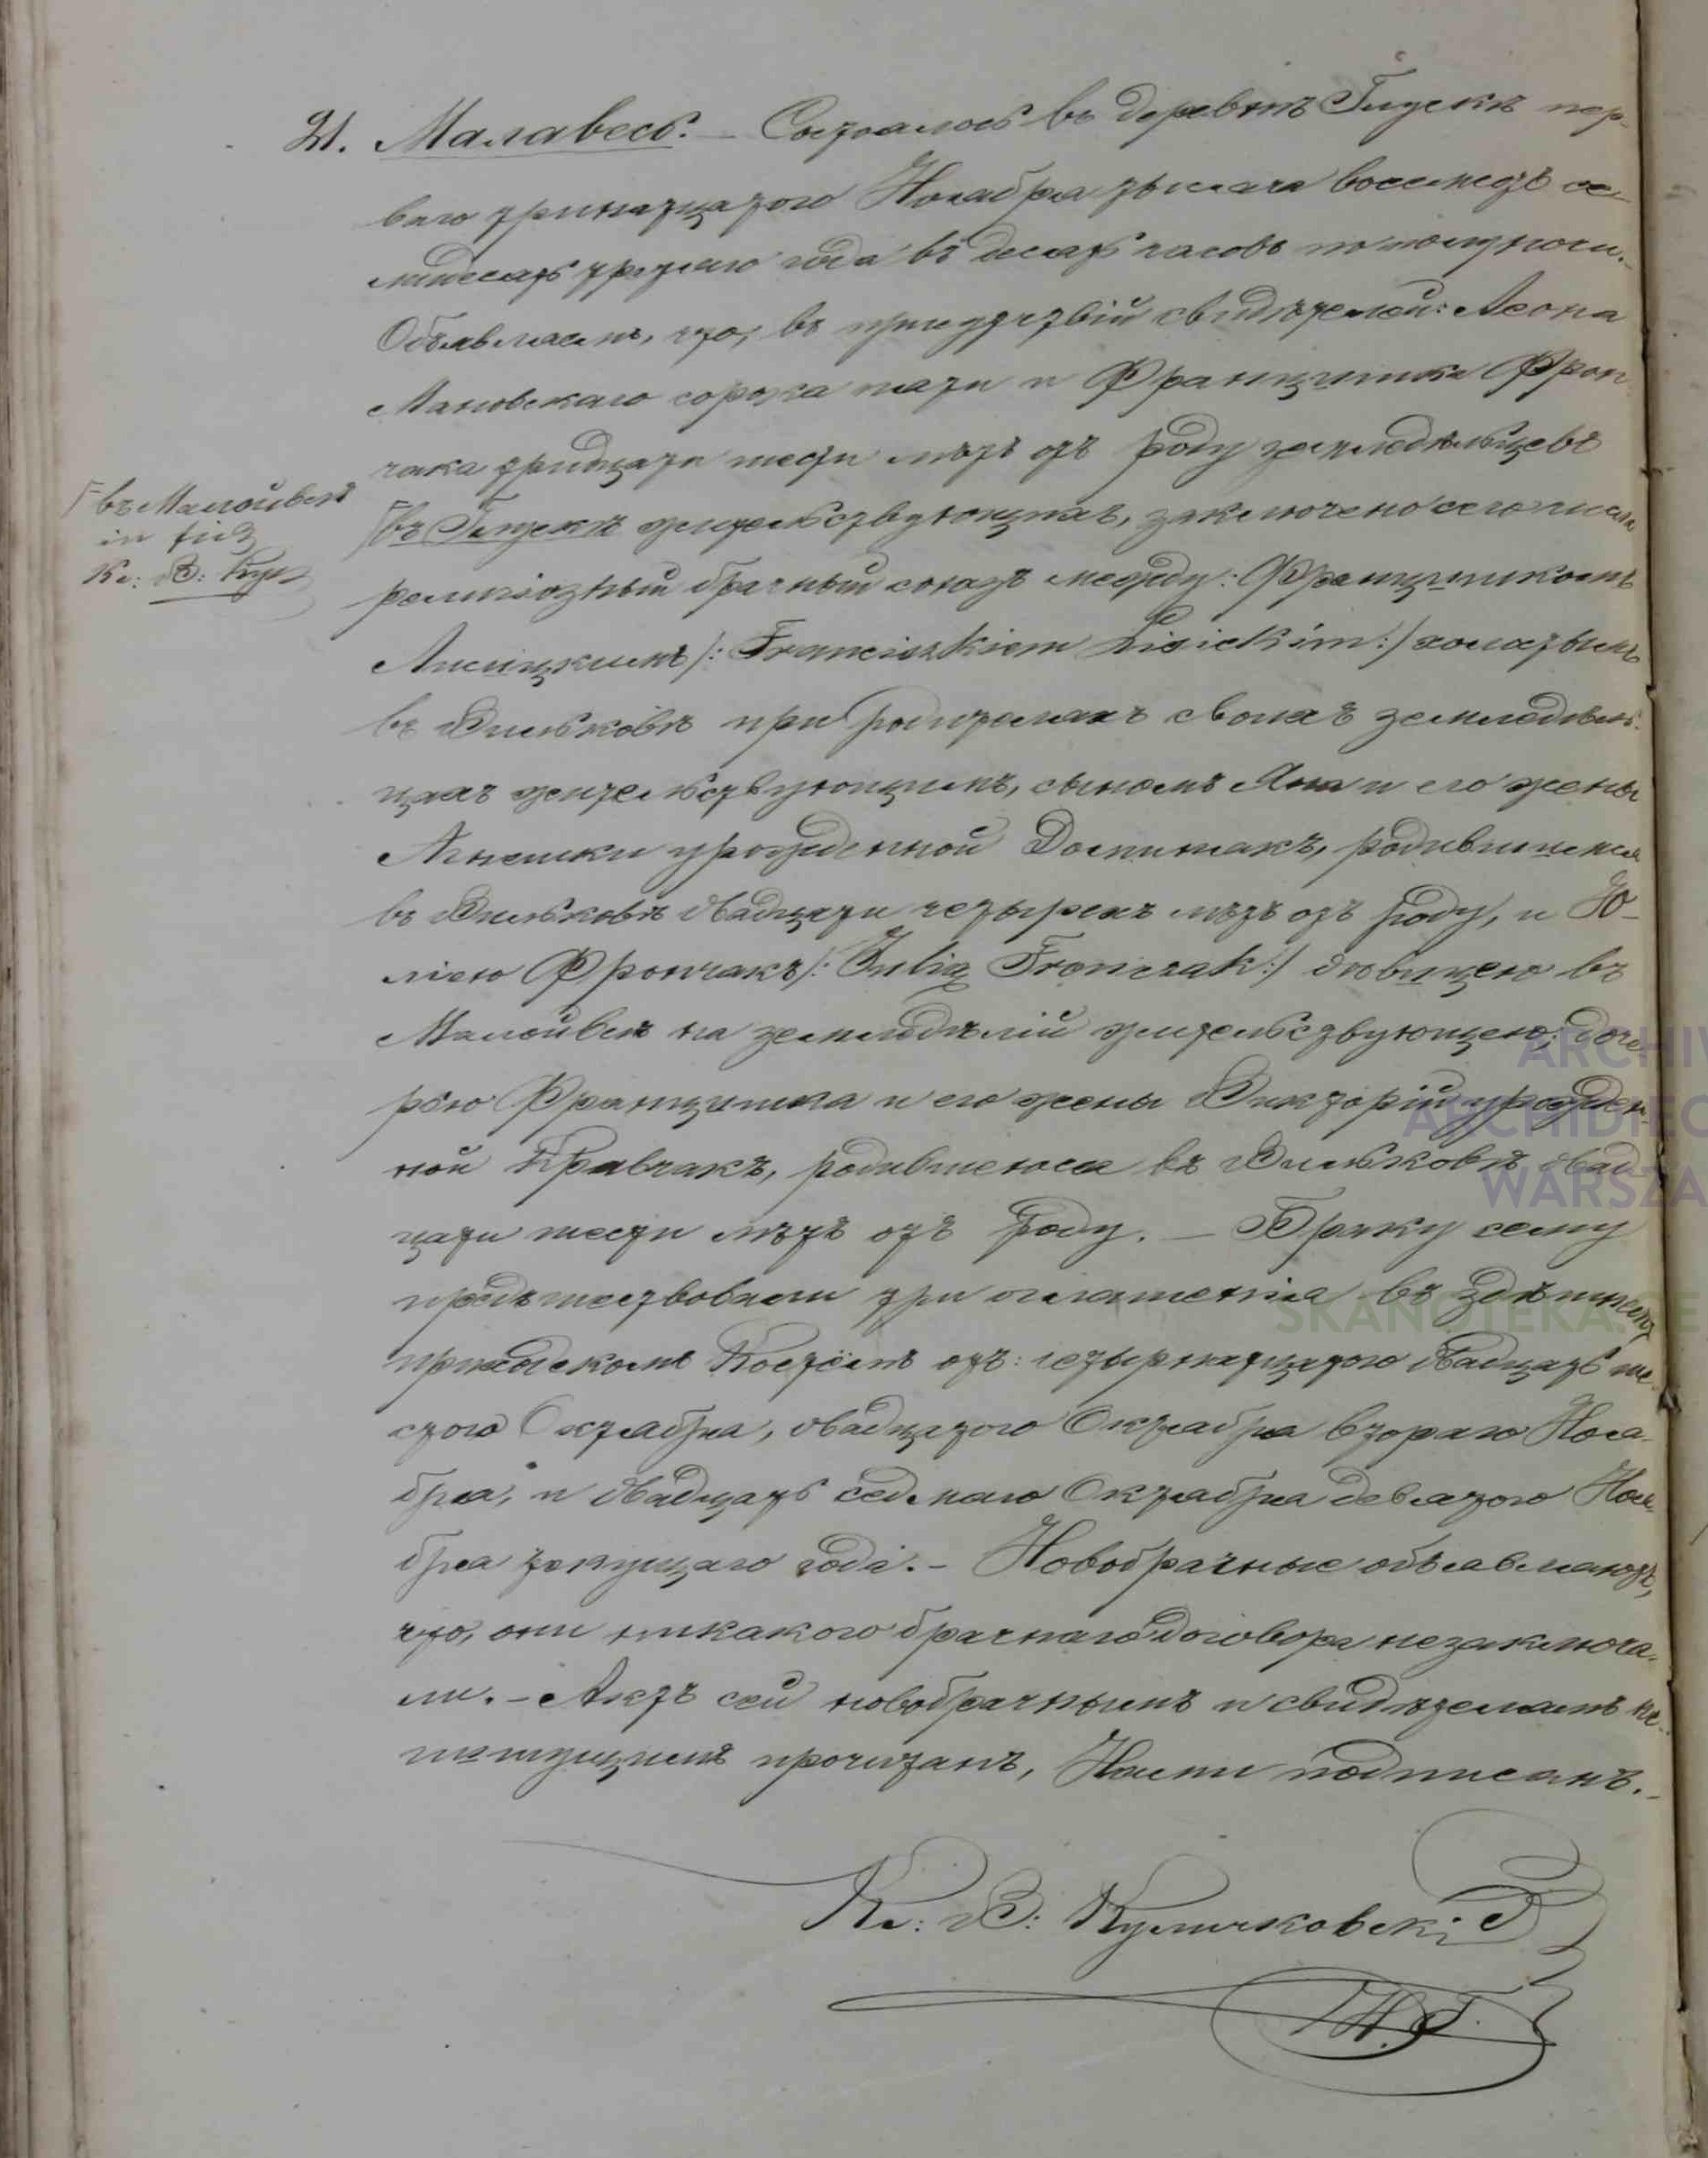 21. Малавесь. – Состоялось въ деревнѣ Глускѣ пер-
ваго тринатцатого Ноября тысяча восемдзъ се-
мдесятъ третьяго года въ десять часовъ по полуночи. –
Объявляемъ, что, въ присутствій свидѣтелей: Леона
Мановскаго сорока пяти и Францишка Фрон-
чака тридцати шести лѣтъ отъ роду земледѣльцевъ
въ Глускѣ жительствующихъ, заключено сего числа
религіозный брачный союзъ между: Францишкомъ
Лисицкимъ /: Franciszkiem Lisickim :/ холостымъ
въ Вильковѣ при родителяхъ своихъ земледѣль-
цахъ жительствующимъ, сыномъ Яна и его жены
Агнешки урожденной Домимакъ, родившимся
въ Вильковѣ двадцати четырехъ лѣтъ отъ роду, и Ю-
ліею Фрончакъ /: Julią Fronczak :/ дѣвицею въ
Малойвси на земледѣлій жительствующею, доче-
рью Францишка и его жены Викторій урожден-
ной Кравчакъ, родившеюся въ Вильковѣ двад-
цати шести лѣтъ отъ роду. – Браку сему
предшествовали три оглашенія въ здѣшнемъ
приходскомъ Костёлѣ отъ: четырнатцатого двадцать ше-
стого Октября, двадцатого Октября втораго Ноя-
бря, и двадцать седмаго Октября девятого Ноя-
бря текущаго года. – Новобрачные объявляютъ,
что, они никакого брачнаго договора незаключа-
ли. – Актъ сей новобрачнымъ и свидѣтелямъ не-
пишущимъ прочитанъ, Нами подписанъ. –
въ Малойвси
in fid
Кс: В: Кул
Кс: В: Куличковскій
Н. Г.
ARCHIW
ARCHIDIEC
WARSZA
SKANOTEKA.GE